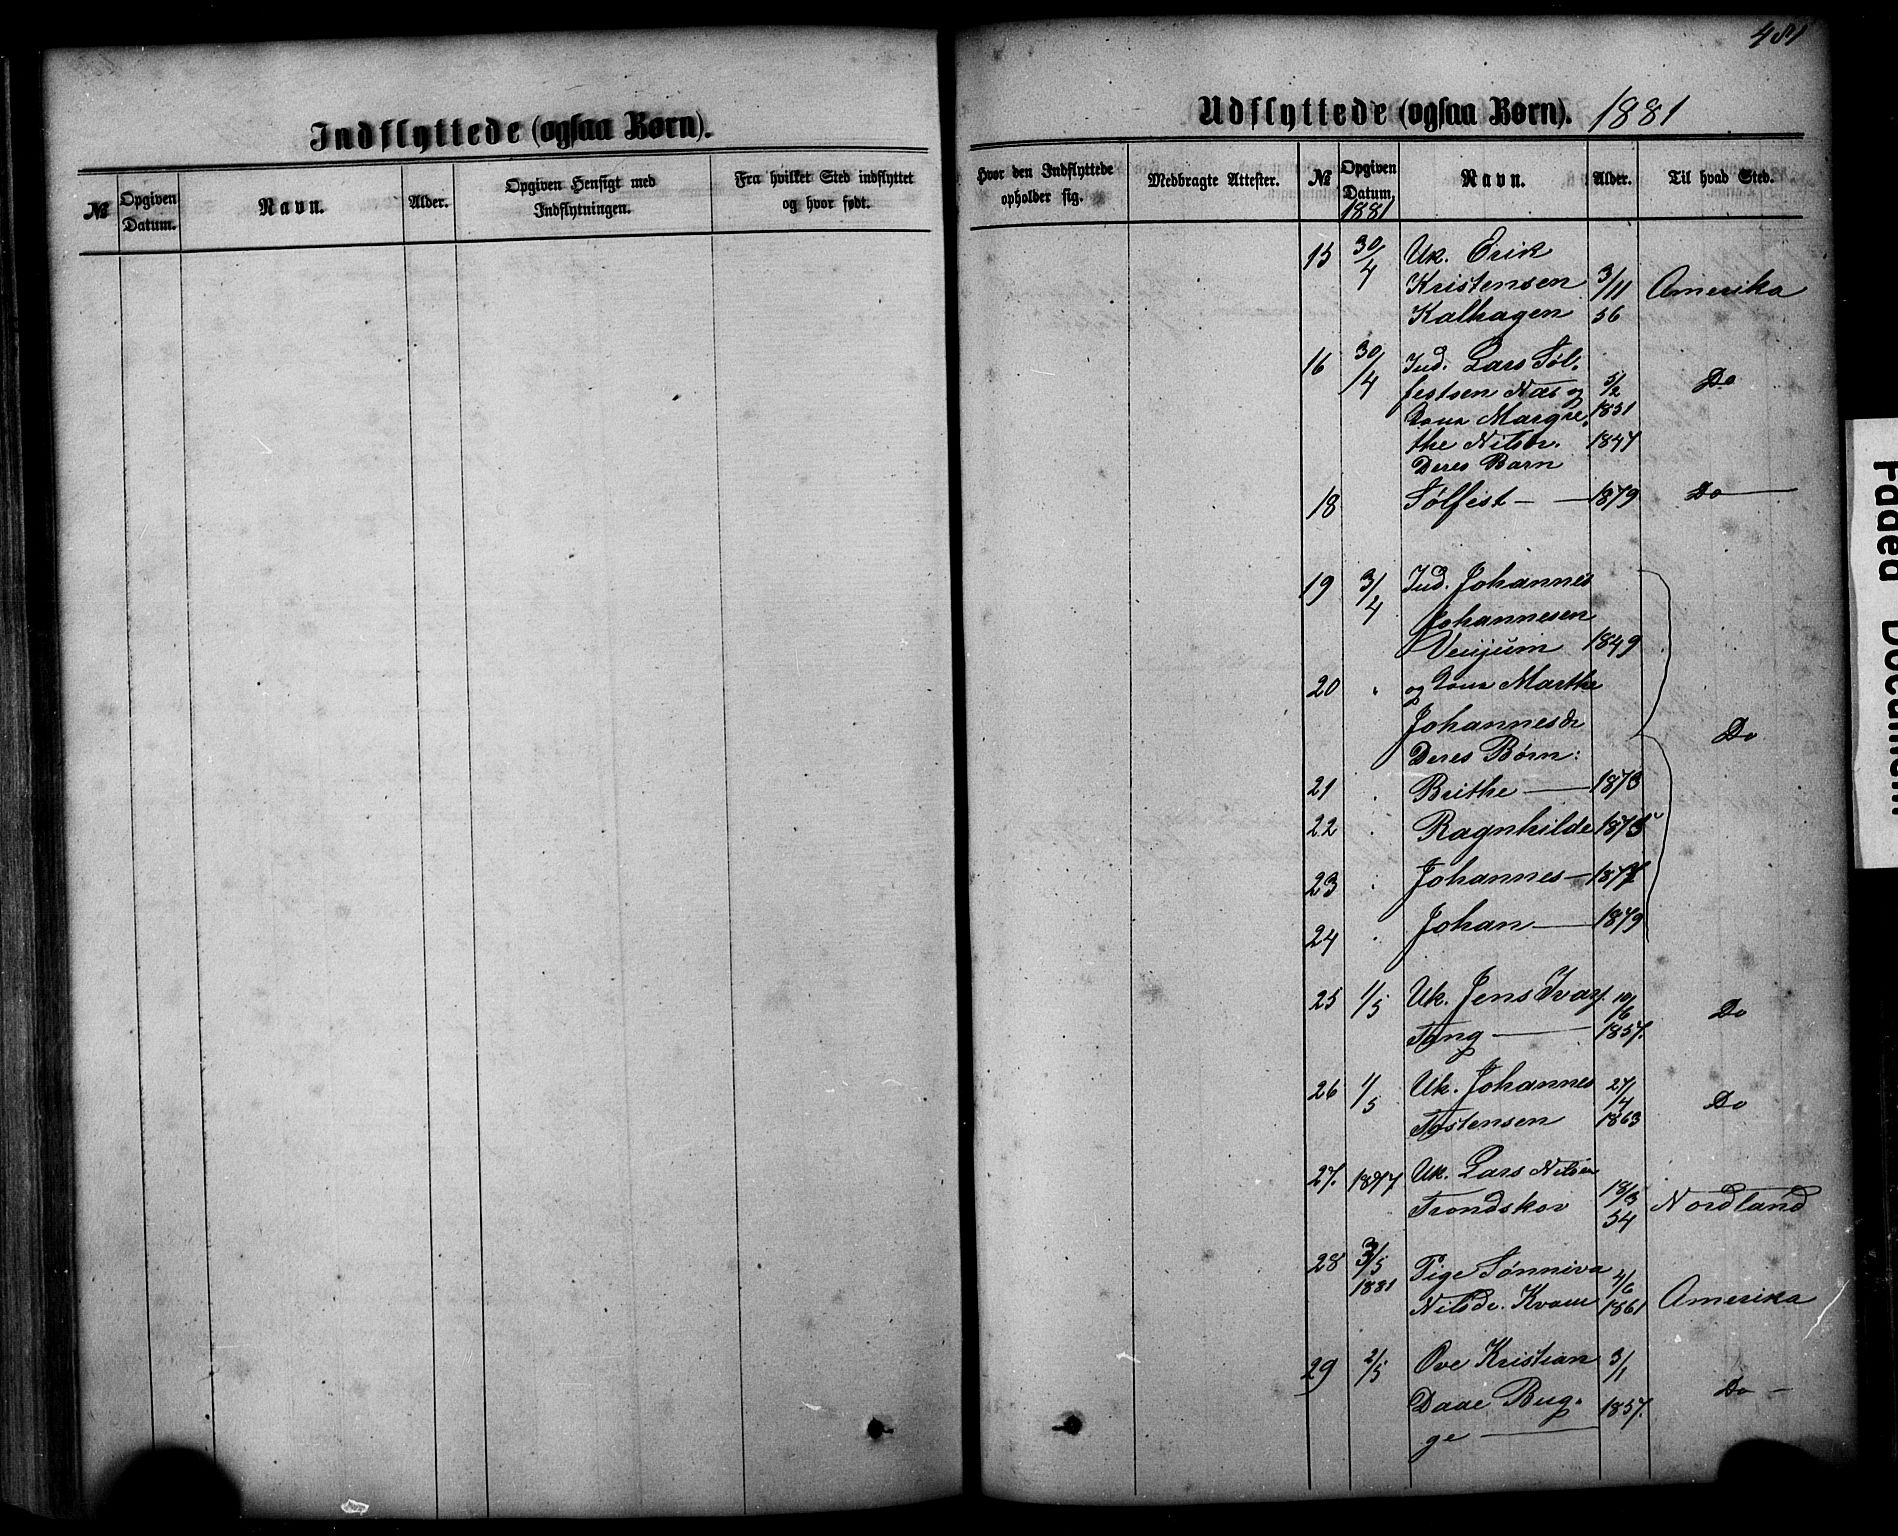 481
Indflyttede (ogsaa Børn).
№
Opgiven Datum.
Navn.
Alder.
Opgiven Hensigt med Indflytningen.
Fra hvilket Sted indflyttet og hvor født.
Udflyttede (ogsaa Børn). 1881
Hvor den Indflyttede opholder sig.
Medbragte Attester.
№
Opgiven Datum.
1881
Navn.
Alder.
Til hvad Sted.
15 30/4 Uk. Erik
Kristensen 3/11 Amerika
Kalhagen 56
16 30/4 Ind. Lars Søl-
festsen Næs og 5/2 Do
Kone Margre- 1851
the Nilsdr. 1847
Deres Barn
18 Sølfest — 1879 Do —
19 3/4 Ind. Johannes
Johannesen
Venjum 1849
20 " og Kone Marthe
Johannesdr Do
Deres Børn:
21 " Brithe — 1873
22 " Ragnhilde 1875
23 " Johannes — 1877
24 " Johan — 1879
25 1/5 Uk. Jens Ivar 10/6 Do
Fang — 1857.
26 1/5 Uk. Johannes 27/4 Do
Tostensen 1863
27. 1877 Uk. Lars Nilsen
Trondskov 18/3 54 Nordland
28 3/5 1881 Pige Sønniva 4/6
Nilsdr. Kvam 1861 Amerika
29 2/5 Ove Kristian 3/1
Daae Bug- 1857. Do —
ge —
Faded Document